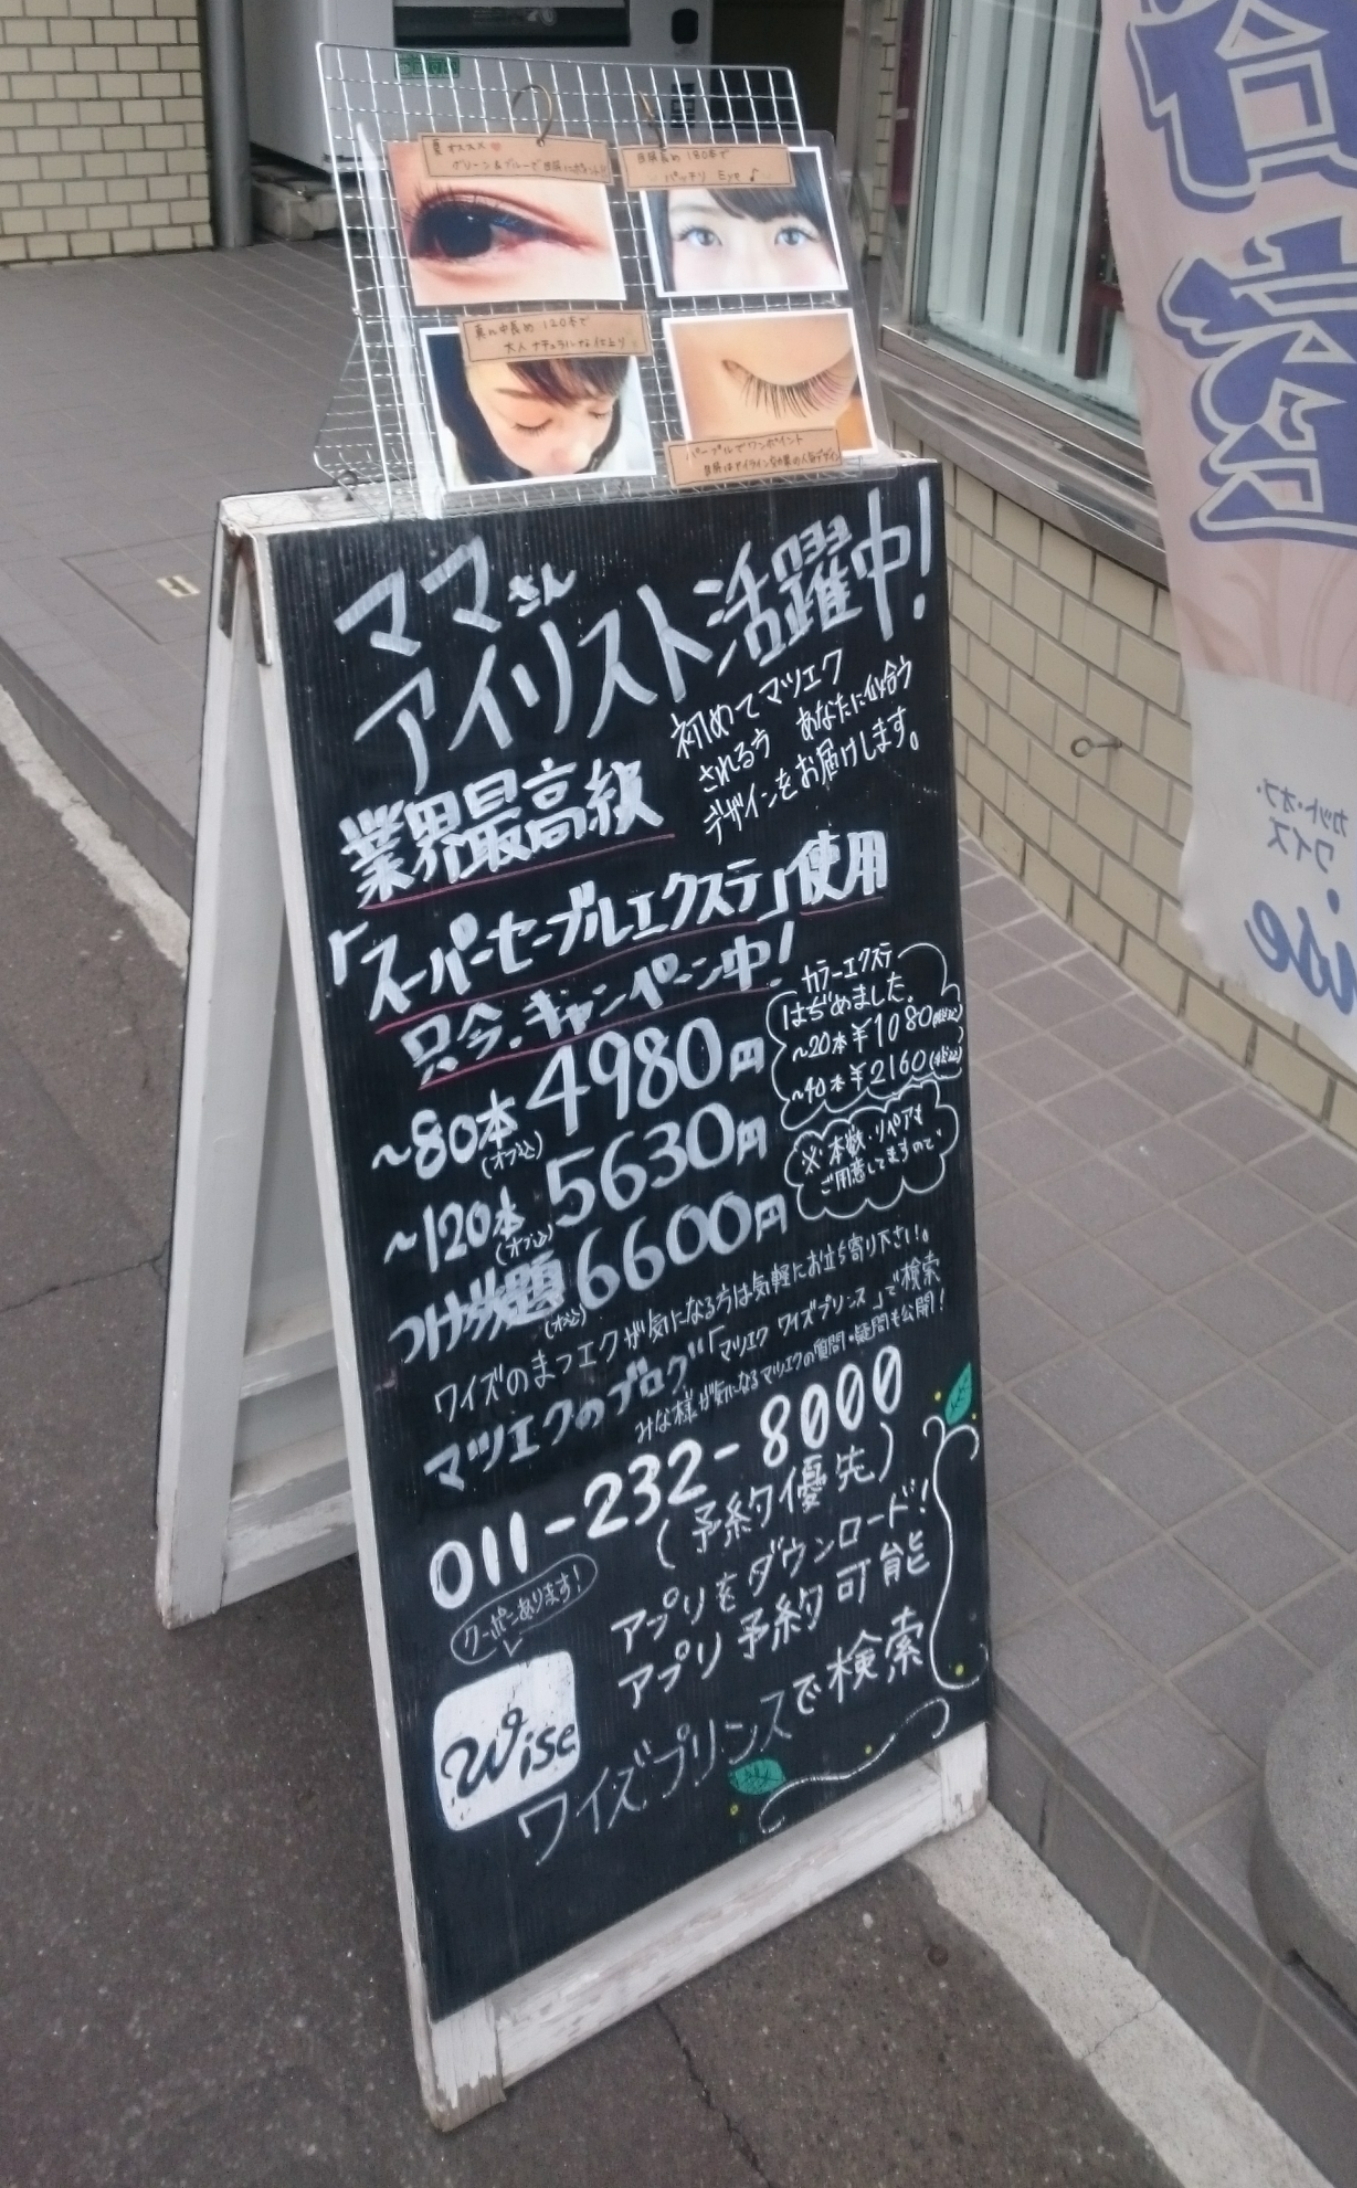 夏オススメ
グリーン&ブルーで目尻に
目尻長め 180本で
パッチリ Eye♪
真ん中長め 120本で
大人ナチュラルな仕上り
パープルでワンポイント
ママさん
アイリスト活躍中!
初めてマツエク
される方 あなたに似合う
デザインをお届けします。
業界最高級
「スーパーセーブルエクステ」使用
只今.キャンペーン中!
~80本 4980円
(オフ込)
~120本 5630円
(オフ込)
つけ放題 6600円
(オフ込)
カラーエクステ
はぢめました。
~20本 ¥1080(税込)
~40本 ¥2160(税込)
※本数・リペアも
ご用意してますので
ワイズのまつエクが気になる方は気軽にお立ち寄り下さい。
マツエクのブログ「マツエク ワイズプリンス」で検索
みな様が気になるマツエクの質問・疑問も公開!
011-232-8000
(予約優先)
クーポンあります!
アプリをダウンロード!
アプリ予約可能
Wise
ワイズプリンスで検索
カット・オブ・
ワイズ